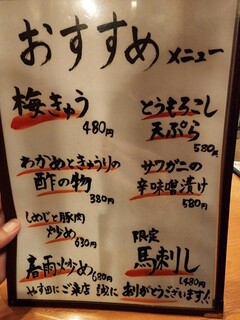 おすすめメニュー
梅きゅう
480円
わかめときゅうりの
酢の物
380円
しめじと豚肉
炒め
630円
春雨炒め
680円
とうもろこし
天ぷら
580円
サワガニの
辛味噌漬け
580円
限定
馬刺し
1,480円
やす田にご来店 誠に ありがとうございます!